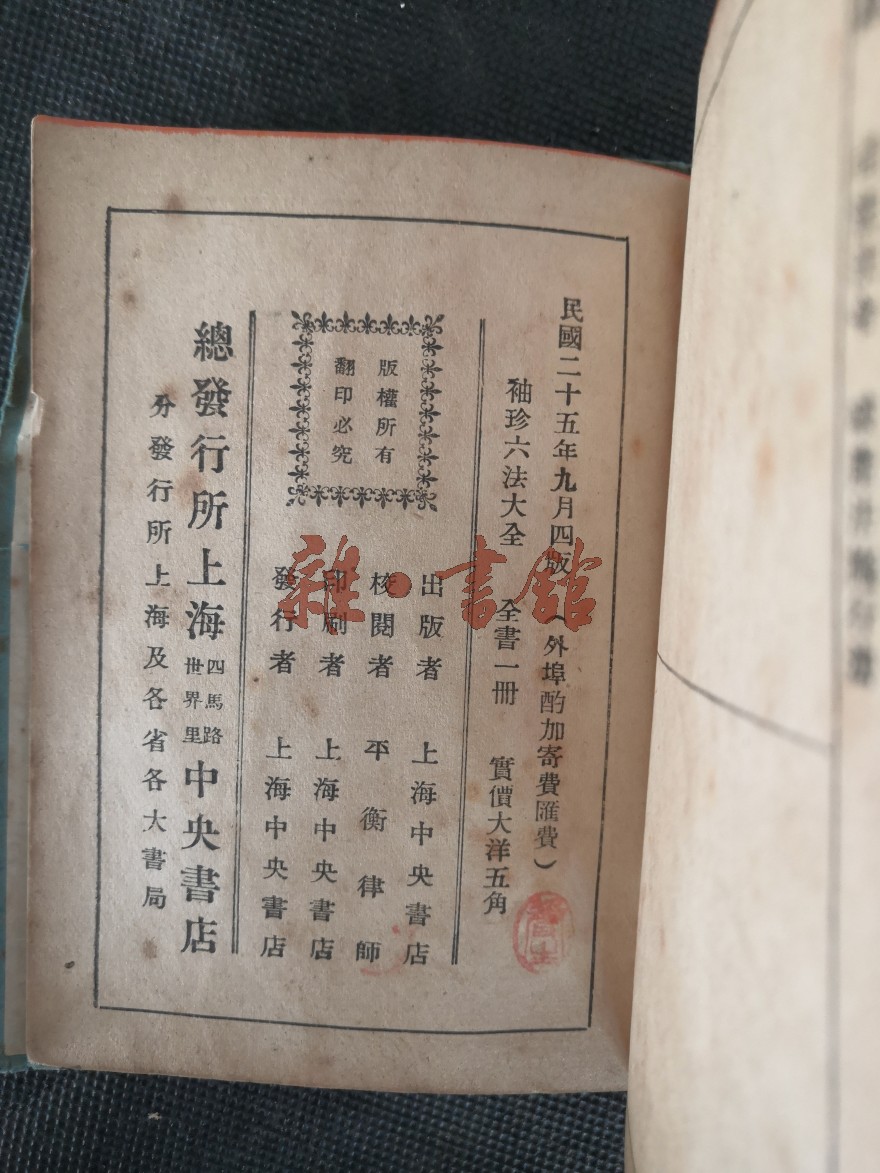 民國二十五年九月四版(外埠酌加寄費匯費)
袖珍六法大全 全書一冊 實價大洋五角
版權所有
翻印必究
出版者 上海中央書店
校閱者 平衡律師
印刷者 上海中央書店
發行者 上海中央書店
總發行所上海四馬路世界里中央書店
分發行所上海及各省各大書局
雜·書館